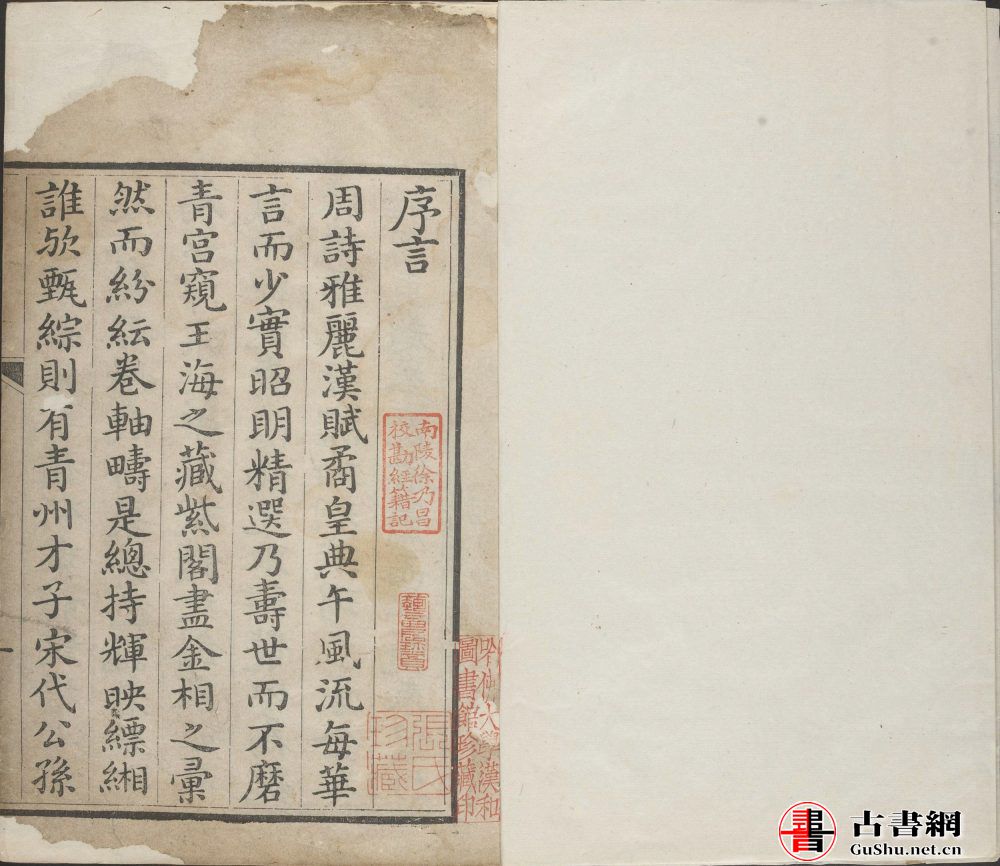 序言
周詩雅麗漢賦矞皇典午風流每華
言而少實昭明精選乃壽世而不磨
青宫窺玉海之藏紫閣盡金相之彙
然而紛紜卷軸疇是總持輝映縹緗
誰欤甄綜則有青州才子宋代公孫
南陵徐乃昌
校勘經籍記
張氏
珍藏
哈佛大學漢和
圖書館珍藏印
書
古書網
GuShu.net.cn